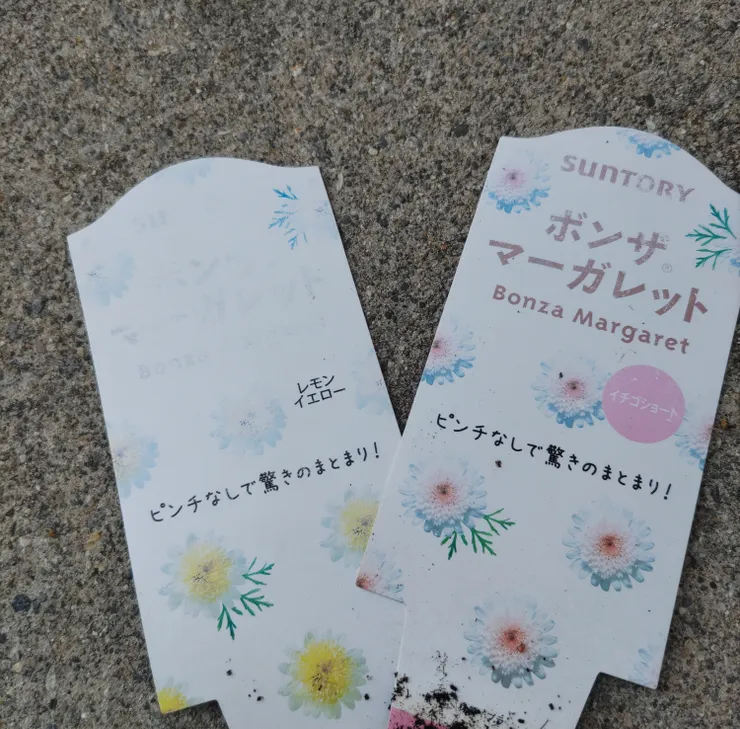 レモン
イエロー
ピンチなしで驚きのまとまり!
SUNTORY
ボンザ®
マーガレット
Bonza Margaret
イチゴショート
ピンチなしで驚きのまとまり!